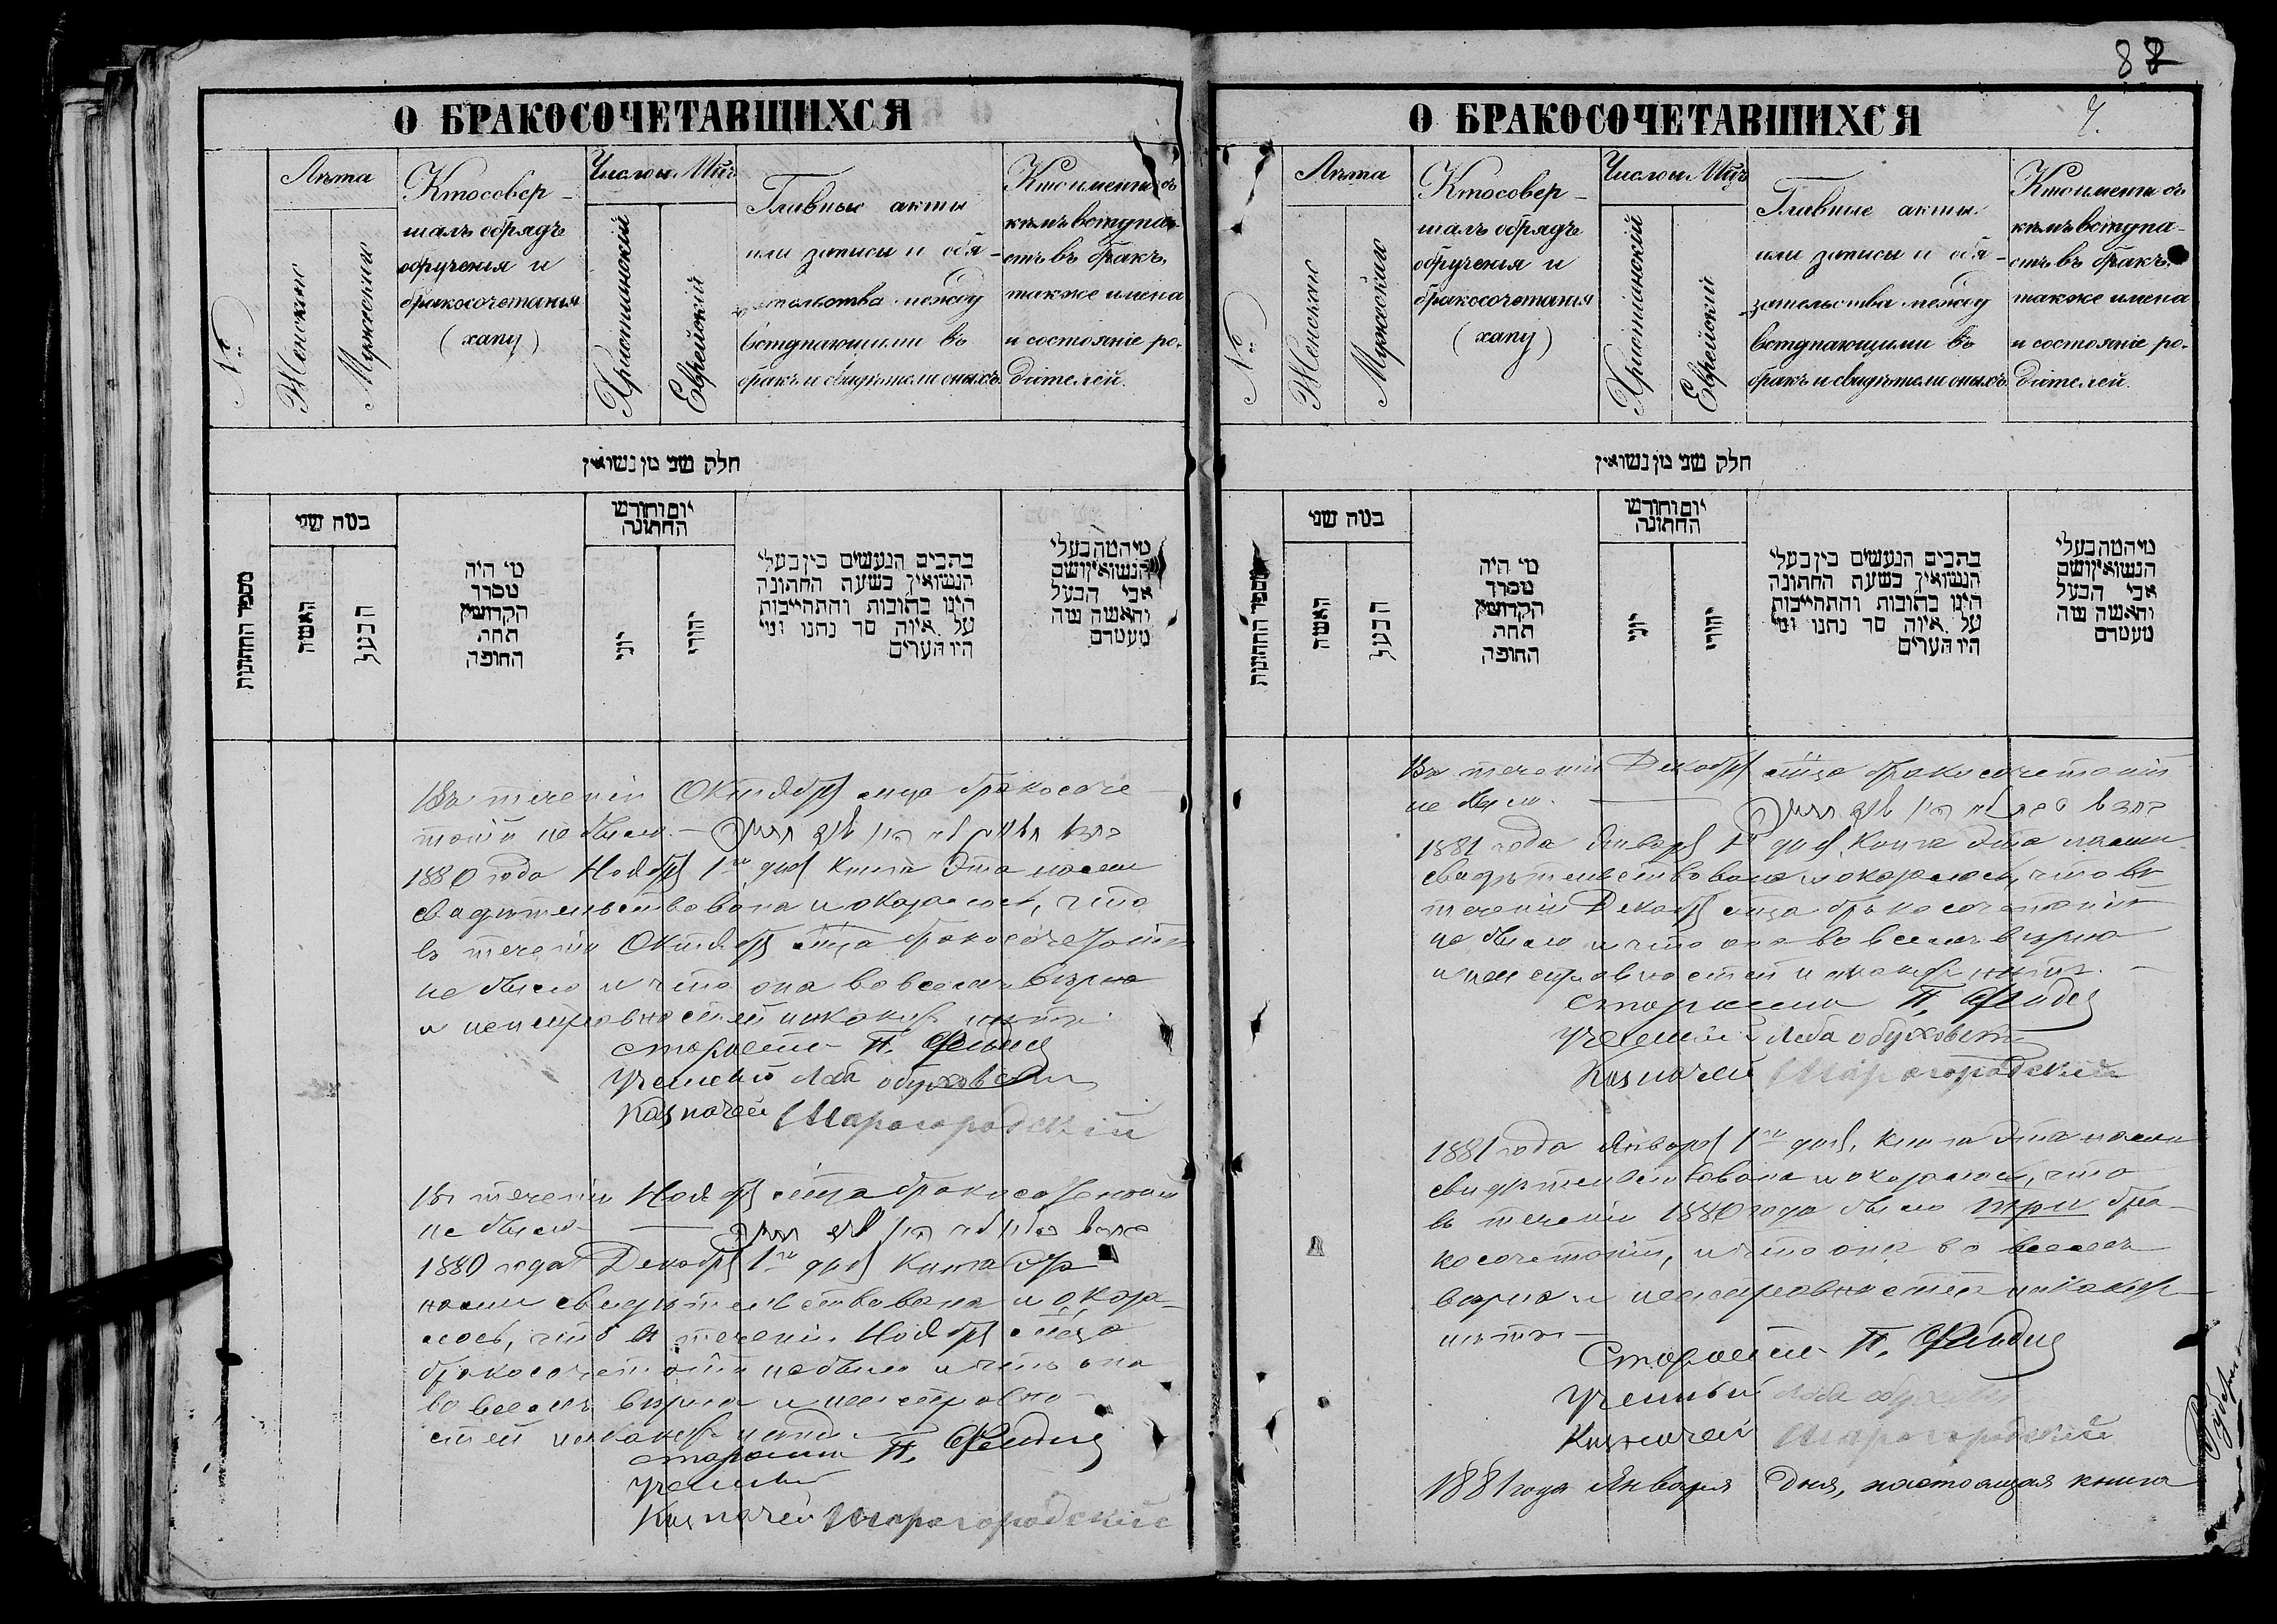 О БРАКОСОЧЕТАВШИХСЯ
№
Лѣта
Женское
Мужеское
Кто совер-
шалъ обрядъ
обрученія и
бракосочетанія
(хапу)
Число и Мцъ
Христіанскій
Еврейскій
Главные акты
или записи и обя-
зательства между
вступающими въ
бракъ и свидѣтели оныхъ
Кто именно съ
кѣмъ вступа-
етъ въ бракъ,
также имена
и состояніе ро-
дителей.
חלק שני מן נשואין
מספר החתונות
כמה שני
האשה
הבעל
מי היה
מסדר
הקדושין
תחת
החופה
יום וחודש
החתונה
יוני
יהודי
כתבים הנעשים בין בעלי
הנשואין בשעת החתונה
היינו כתובות והתחייבות
על איזה סך נתנו ומי
היו העדים
מי המה בעלי
הנשואין ושם
אבי הבעל
והאשה ומה
מעמדם
Въ теченіи Октября мца бракосоче-
танія не было. –
1880 года Ноября 1го дня книга эта нами
свидѣтельствована и оказалось, что
въ теченіи Октября мца бракосочетанія
не было и что она во всемъ вѣрна
и неисправностей никакихъ нѣтъ.
Староста П.
Ученый Леба Обуховскій
Казначей Шарогородскій
Въ теченіи Ноября мца бракосочетанія
не было –
1880 года Декабря 1го дня книга эта
нами свидѣтельствована и оказа-
лось, что въ теченіи Ноября мца
бракосочетанія не было и что она
во всемъ вѣрна и неисправно-
стей никакихъ нѣтъ.
Староста П.
Ученый
Казначей Шарогородскій
87
7.
О БРАКОСОЧЕТАВШИХСЯ
№
Лѣта
Женское
Мужеское
Кто совер-
шалъ обрядъ
обрученія и
бракосочетанія
(хапу)
Число и Мцъ
Христіанскій
Еврейскій
Главные акты
или записи и обя-
зательства между
вступающими въ
бракъ и свидѣтели оныхъ
Кто именно съ
кѣмъ вступа-
етъ въ бракъ,
также имена
и состояніе ро-
дителей.
חלק שני מן נשואין
מספר החתונות
כמה שני
האשה
הבעל
מי היה
מסדר
הקדושין
תחת
החופה
יום וחודש
החתונה
יוני
יהודי
כתבים הנעשים בין בעלי
הנשואין בשעת החתונה
היינו כתובות והתחייבות
על איזה סך נתנו ומי
היו העדים
מי המה בעלי
הנשואין ושם
אבי הבעל
והאשה ומה
מעמדם
Въ теченіи Декабря мца бракосочетанія
не было.
1881 года Января 1го дня книга эта нами
свидѣтельствована и оказалось, что въ
теченіи Декабря мца бракосочетанія
не было и что она во всемъ вѣрна
и неисправностей никакихъ нѣтъ. –
Староста П.
Ученый Леба Обуховскій
Казначей Шарогородскій
1881 года Января 1го дня, книга эта нами
свидѣтельствована и оказалось, что
въ теченіи 1880 года было три бра-
косочетанія, и что она во всемъ
вѣрна и неисправностей никакихъ
нѣтъ –
Староста П.
Ученый Леба
Казначей Шарогородскій
1881 года Января дня, настоящая книга